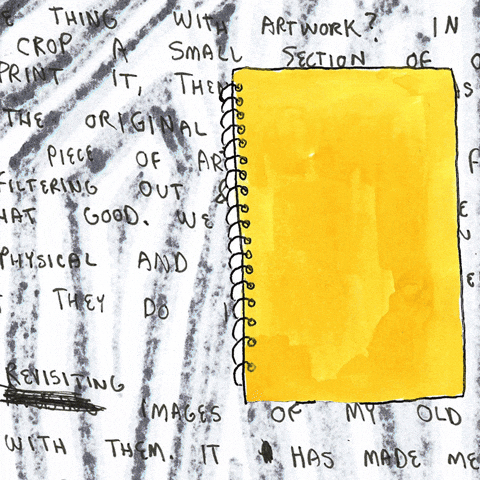 THING WITH ARTWORK? IN
CROP A SMALL SECTION OF
PRINT IT, THEN
THE ORIGINAL
PIECE OF AR
FILTERING OUT
HAT GOOD. WE
PHYSICAL AND
THEY DO
REVISITING
IMAGES OF MY OLD
WITH THEM. IT HAS MADE ME